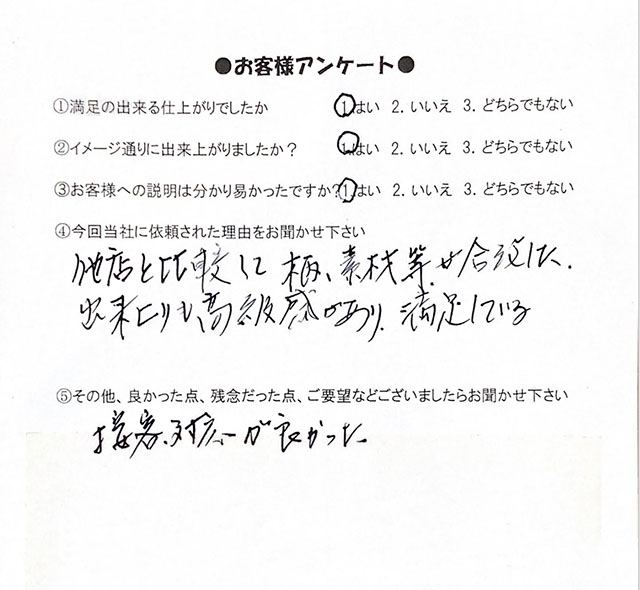 ●お客様アンケート●
①満足の出来る仕上がりでしたか 1.はい 2.いいえ 3.どちらでもない
②イメージ通りに出来上がりましたか? 1.はい 2.いいえ 3.どちらでもない
③お客様への説明は分かり易かったですか? 1.はい 2.いいえ 3.どちらでもない
④今回当社に依頼された理由をお聞かせ下さい
他店と比較して 柄、素材等が合致した.
出来上りも高級感があり、満足している
⑤その他、良かった点、残念だった点、ご要望などございましたらお聞かせ下さい
接客、対応が良かった.